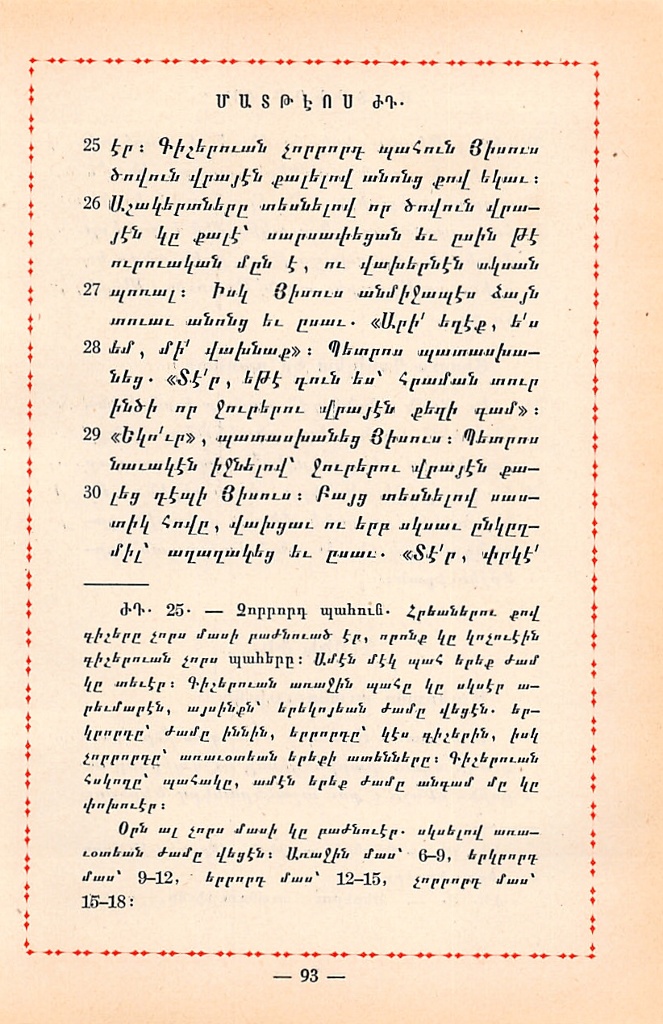 ՄԱՏԹԷՈՍ ԺԴ.
25 էր։ Գիշերուան չորրորդ պահուն Յիսուս
ծովուն վրայէն քալելով անոնց քով եկաւ։
26 Աշակերտները տեսնելով որ ծովուն վրա—
յէն կը քալէ՝ սարսափեցան եւ ըսին թէ
ուրուական մըն է, ու վախերնէն սկսան
27 պոռալ։ Իսկ Յիսուս անմիջապէս ձայն
տուաւ անոնց եւ ըսաւ. «Արի՛ եղէք, ե՛ս
28 եմ, մի՛ վախնաք»։ Պետրոս պատասխա—
նեց. «Տէ՛ր, եթէ դուն ես՝ հրաման տուր
ինծի որ ջուրերու վրայէն քեզի գամ»։
29 «Եկո՛ւր», պատասխանեց Յիսուս։ Պետրոս
նաւակէն իջնելով՝ ջուրերու վրայէն քա—
30 լեց դէպի Յիսուս։ Բայց տեսնելով սաս—
տիկ հովը, վախցաւ ու երբ սկսաւ ընկըղ—
միլ՝ աղաղակեց եւ ըսաւ. «Տէ՛ր, փրկէ՛
ԺԴ. 25. — Չորրորդ պահուն. Հրեաներու քով
գիշերը չորս մասի բաժնուած էր, որոնք կը կոչուէին
գիշերուան չորս պահերը։ Ամէն մէկ պահ երեք ժամ
կը տեւէր։ Գիշերուան առաջին պահը կը սկսէր ա—
րեւմարէն, այսինքն՝ երեկոյեան ժամը վեցէն. եր—
կրորդը՝ ժամը իննին, երրորդը՝ կէս գիշերին, իսկ
չորրորդը՝ առաւօտեան երեքի ատենները։ Գիշերուան
հսկողը՝ պահակը, ամէն երեք ժամը անգամ մը կը
փոխուէր։
Օրն ալ չորս մասի կը բաժնուէր. սկսելով առա—
ւօտեան ժամը վեցէն։ Առաջին մաս՝ 6–9, երկրորդ
մաս՝ 9–12, երրորդ մաս՝ 12–15, չորրորդ մաս՝
15–18։
— 93 —